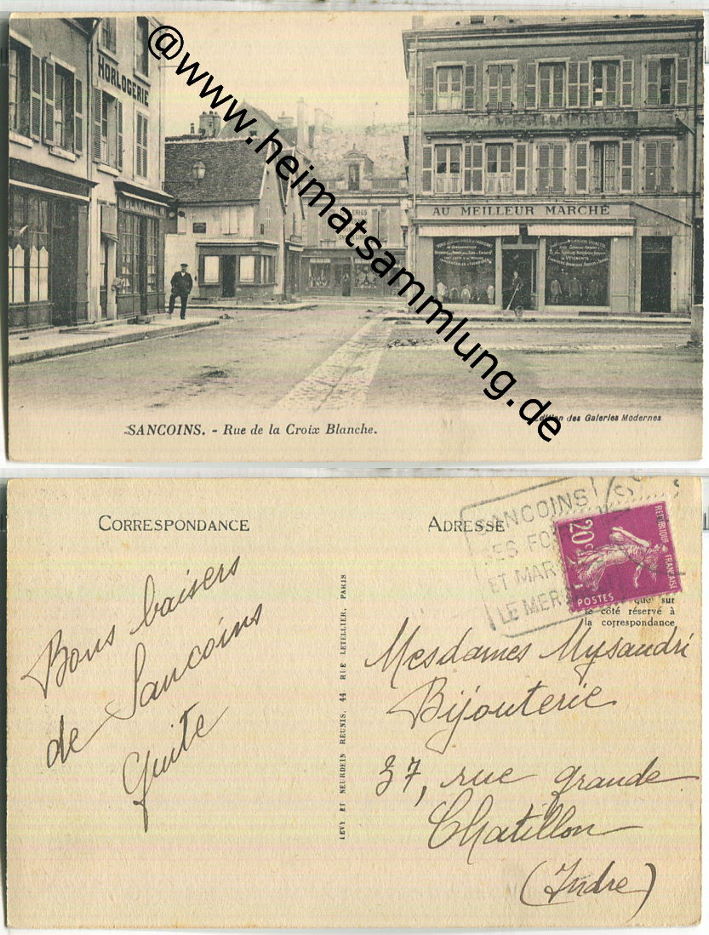 HORLOGERIE
AU MEILLEUR MARCHE
@www.heimatsammlung.de
SANCOINS. - Rue de la Croix Blanche.
Edition des Galeries Modernes
CORRESPONDANCE
ADRESSE
SANCOINS
SES FO
ET MAR
LE MER
20c
REPUBLIQUE FRANÇAISE
POSTES
que sur
le côté réservé à
la correspondance
Bons baisers
de Sancoins
Guite
LEVY ET NEURDEIN REUNIS, 44 RUE LETELLIER, PARIS
Mesdames Mysandri
Bijouterie
37, rue grande
Chatillon
(Indre)